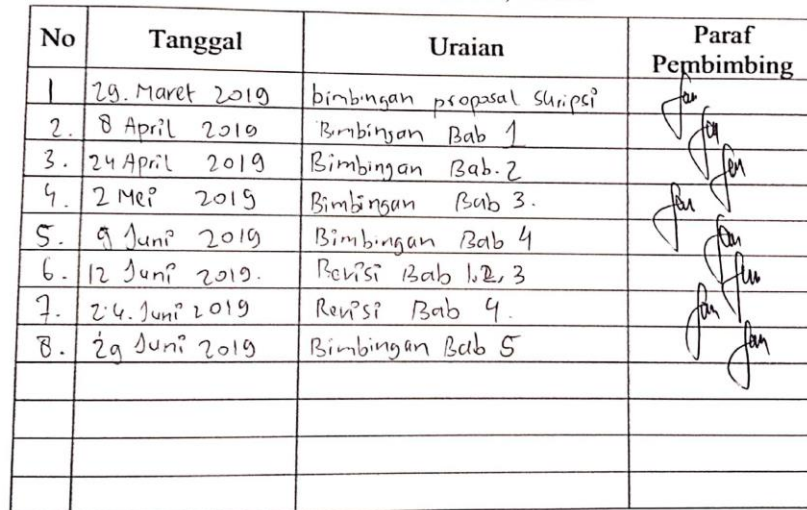 No Tanggal Uraian Paraf Pembimbing
1 29. Maret 2019 bimbingan proposal skripsi
2. 8 April 2019 Bimbingan Bab 1
3. 24 April 2019 Bimbingan Bab. 2
4. 2 Mei 2019 Bimbingan Bab 3.
5. 9 Juni 2019 Bimbingan Bab 4
6. 12 Juni 2019. Revisi Bab 1, 2, 3
7. 24. Juni 2019 Revisi Bab 4.
8. 29 Juni 2019 Bimbingan Bab 5